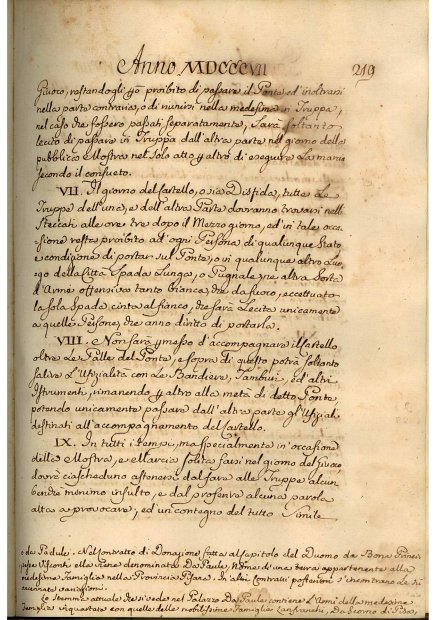 Anno MDCCCVII
219
Giuoco, restandogli però proibito di passare il Ponte, ed inoltrarsi
nella parte contraria, o di riunirsi nella medesima in Truppa,
nel caso che fossero passati separatamente, Sarà soltanto
lecito di passare in Truppa dall'altra parte nel giorno della
pubblica Mostra nel solo atto però di eseguire la marcia
secondo il consueto.
VII. Il giorno del Cartello, o sia Disfida, tutte Le
Truppe dell'una, e dell'altra Parte dovranno trovarsi nelli
Steccati alle ore tre dopo il Mezzo giorno, ed in tale occa-
sione resta proibito ad ogni Persona di qualunque stato
e condizione di portar sul Ponte, o in qualunque altro Luo-
go della Città Spada Lunga, o Pugnale, ne altra sorta
d'Arme offensiva tanto bianca, che da fuoco, eccettuato
la sola Spada cinta al fianco, che sarà Lecita unicamente
a quelle Persone, che anno diritto di portarla.
VIII. Non sarà permesso d'accompagnare il Cartello
oltre Le Palle del Ponte, e sopra di questo potrà soltanto
salire L'Ufizialità con Le Bandiere, Tamburi, ed altri
Istrumenti, rimanendo però altro alla metà di detto Ponte
potendo unicamente passare dall'altra parte gl'Ufiziali
destinati all'accompagnamento del Cartello.
IX. In tutti i tempi, ma specialmente in occasione
della Mostra, e Marcia solita farsi nel giorno del Giuoco
dovrà ciascheduno astenersi dal fare alle Truppe alcun
benchè minimo insulto, e dal proferire alcuna parola
atta a provocare, ed un contegno del tutto Simile
e da Padule. Nel Contratto di Donazione fatta al Capitolo del Duomo da Bona
Visconti ella viene denominata Da Paule, Nome di una terra appartenente alla
medesima Famiglia nella Provincia Pisana. In altri Contratti posteriori
Lo Stemma attuale che si vede nel Palazzo Da Paule contiene l'Armi della medesima
Famiglia inquartata con quelle delle nobilissime Famiglie Lanfranchi, Da Scorno di Pisa,